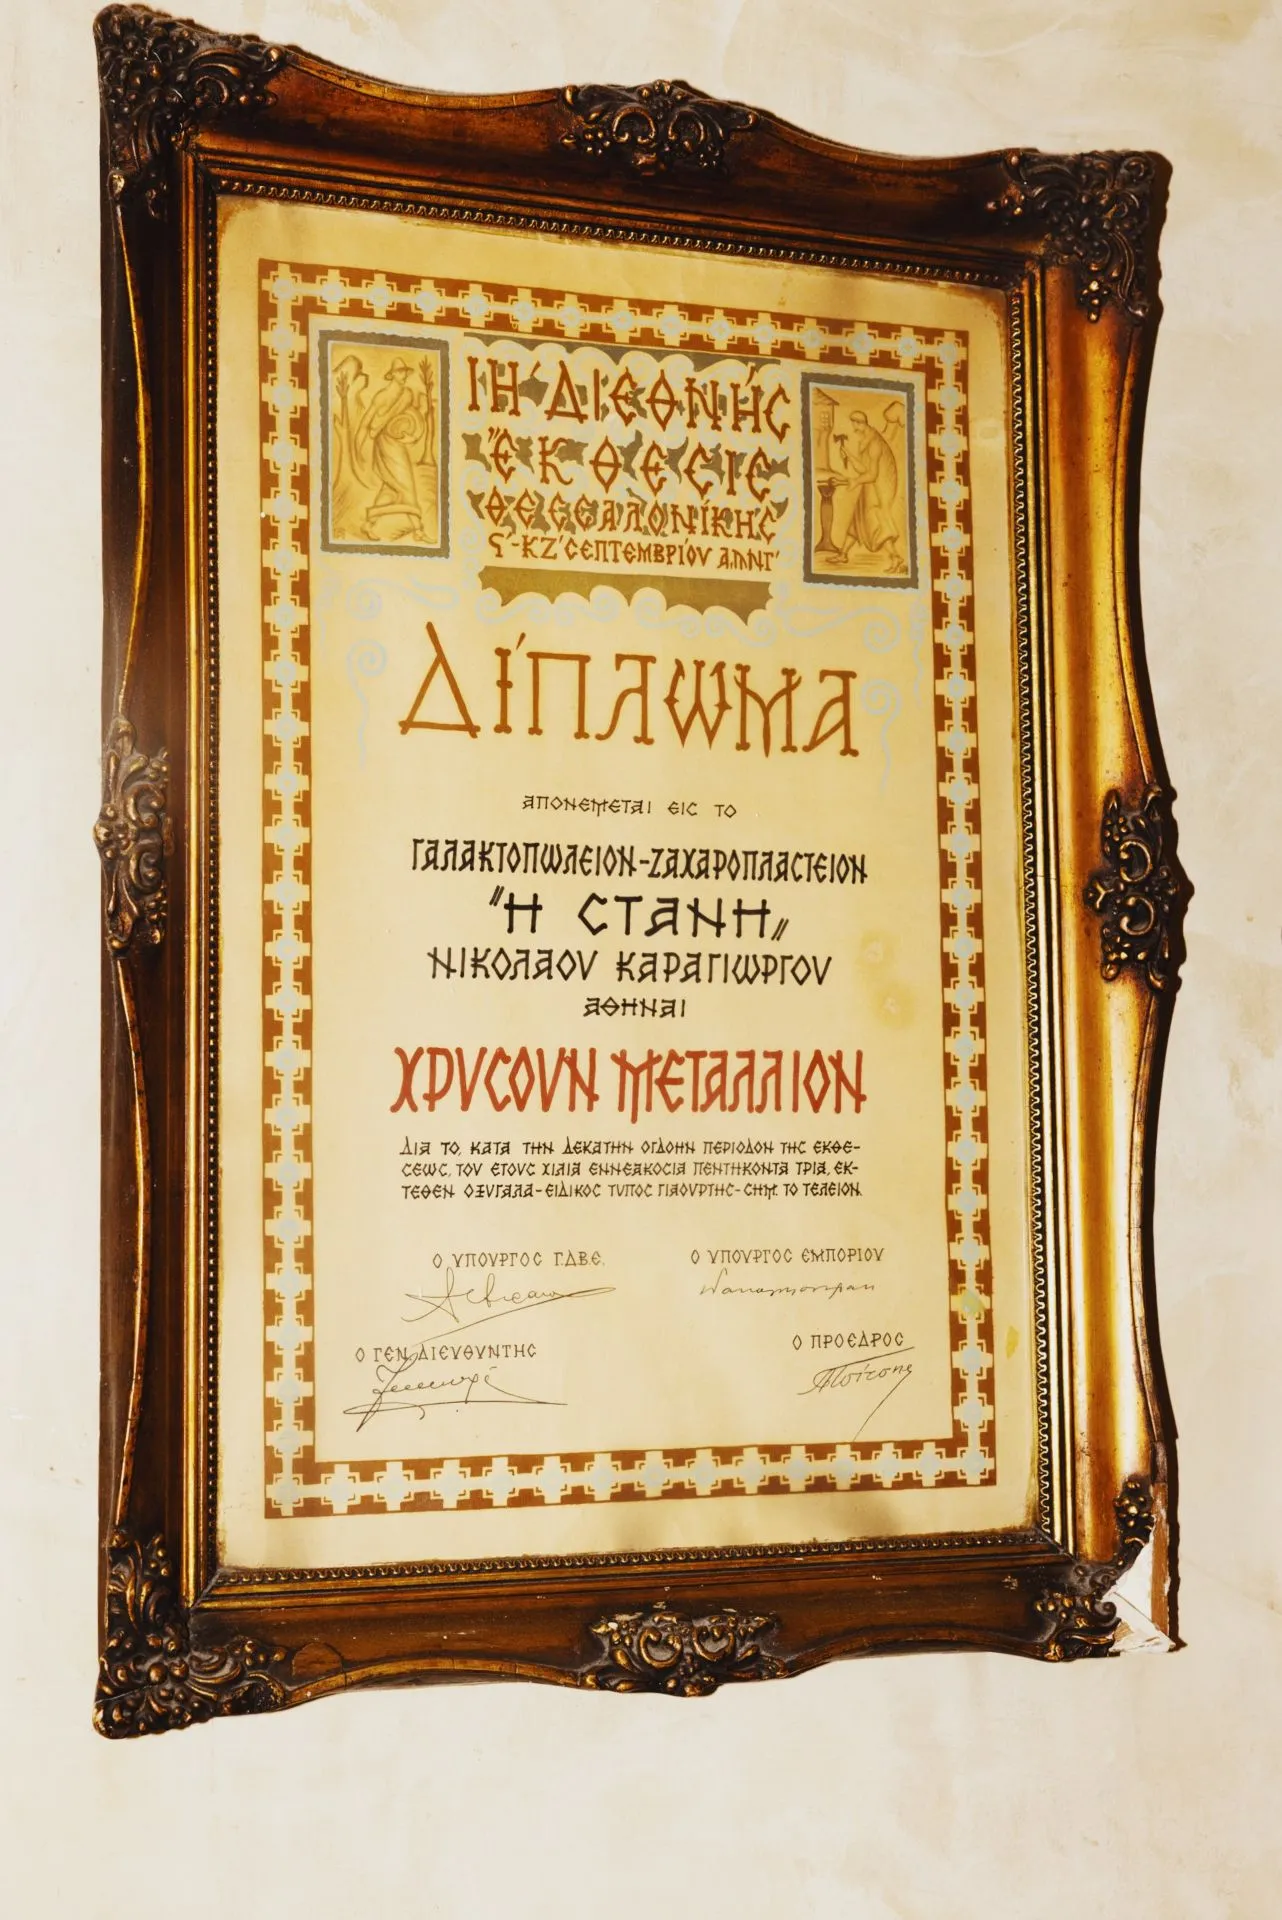 ΙΗ´ ΔΙΕΘΝΉΣ
ἜΚΘΕΣΙΣ
ΘΕΣΣΑΛΟΝΊΚΗΣ
Ϛ´-ΚΖ´ ΣΕΠΤΕΜΒΡΊΟΥ
ΔΊΠΛΩΜΑ
ΑΠΟΝΕΜΕΤΑΙ ΕΙΣ ΤΟ
ΓΑΛΑΚΤΟΠΩΛΕΙΟΝ-ΖΑΧΑΡΟΠΛΑΣΤΕΙΟΝ
"Η ΣΤΑΝΗ„
ΝΙΚΟΛΑΟΥ ΚΑΡΑΓΙΩΡΓΟΥ
ΑΘΗΝΑΙ
ΧΡΥΣΟΥΝ ΜΕΤΑΛΛΙΟΝ
ΔΙΑ ΤΟ, ΚΑΤΑ ΤΗΝ ΔΕΚΑΤΗΝ ΟΓΔΟΗΝ ΠΕΡΙΟΔΟΝ ΤΗΣ ΕΚΘΕ-
ΣΕΩΣ, ΤΟΥ ΕΤΟΥΣ ΧΙΛΙΑ ΕΝΝΕΑΚΟΣΙΑ ΠΕΝΤΗΚΟΝΤΑ ΤΡΙΑ, ΕΚ-
ΤΕΘΕΝ ΟΞΥΓΑΛΑ-ΕΙΔΙΚΟΣ ΤΥΠΟΣ ΓΙΑΟΥΡΤΗΣ-ΣΗΜ. ΤΟ ΤΕΛΕΙΟΝ.
Ο ΥΠΟΥΡΓΟΣ Γ.Δ.Β.Ε. Ο ΥΠΟΥΡΓΟΣ ΕΜΠΟΡΙΟΥ
Ο ΓΕΝ. ΔΙΕΥΘΥΝΤΗΣ Ο ΠΡΟΕΔΡΟΣ